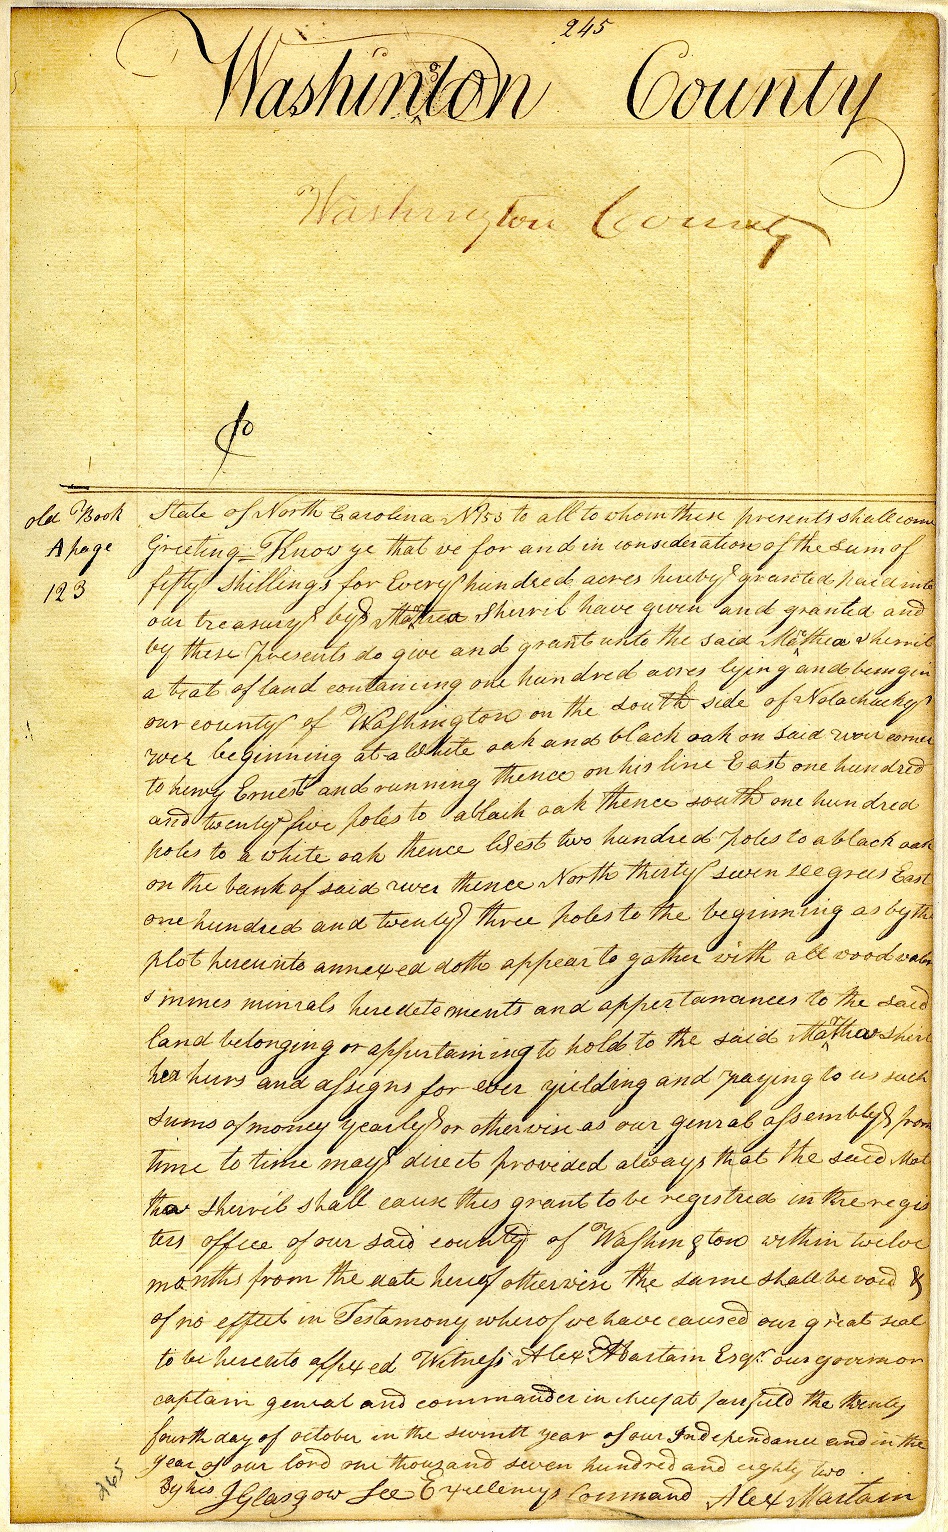 245
Washington County
Washington County
old Book
A page
123
State of North Carolina No 53 to all to whom these presents shall come
Greeting = Know ye that we for and in consideration of the sum of
fifty shillings for Every hundred acres hereby granted paid into
our treasury by Mathea Sherril have given and granted and
by these presents do give and grant unto the said Mathea Sherril
a trat of land containing one hundred acres lying and being in
our county of Washington on the south side of Nolachucky
river beginning at a White oak and black oak on said river corner
to henry Ernest and running thence on his line East one hundred
and twenty five poles to a black oak thence south one hundred
poles to a white oak thence West two hundred poles to a black oak
on the bank of said river thence North thirty seven degrees East
one hundred and twenty three poles to the beginning as by the
plot hereunto annexed doth appear to gather with all wood water
s mines minrals heredetements and appertanances to the said
land belonging or appertaining to hold to the said Mathea Sherril
her heirs and assigns for ever yielding and paying to us such
sums of money yearly or otherwise as our genral assembly from
time to time may direct provided always that the said Mat
thea Sherril shall cause this grant to be registred in the regis
ters office of our said county of Washington within twelve
months from the date hereof otherwise the same shall be void &
of no effect in Testamony wherof we have caused our great seal
to be hereto affixed Witness Alex Martain Esqr. our govornor
captain genral and commander in cheef at fairfield the twenty
fourth day of october in the seventh year of our Independance and in the
year of our lord one thousand seven hundred and eighty two.
By his J Glasgow Sec Excellencys Command Alex Martain
265